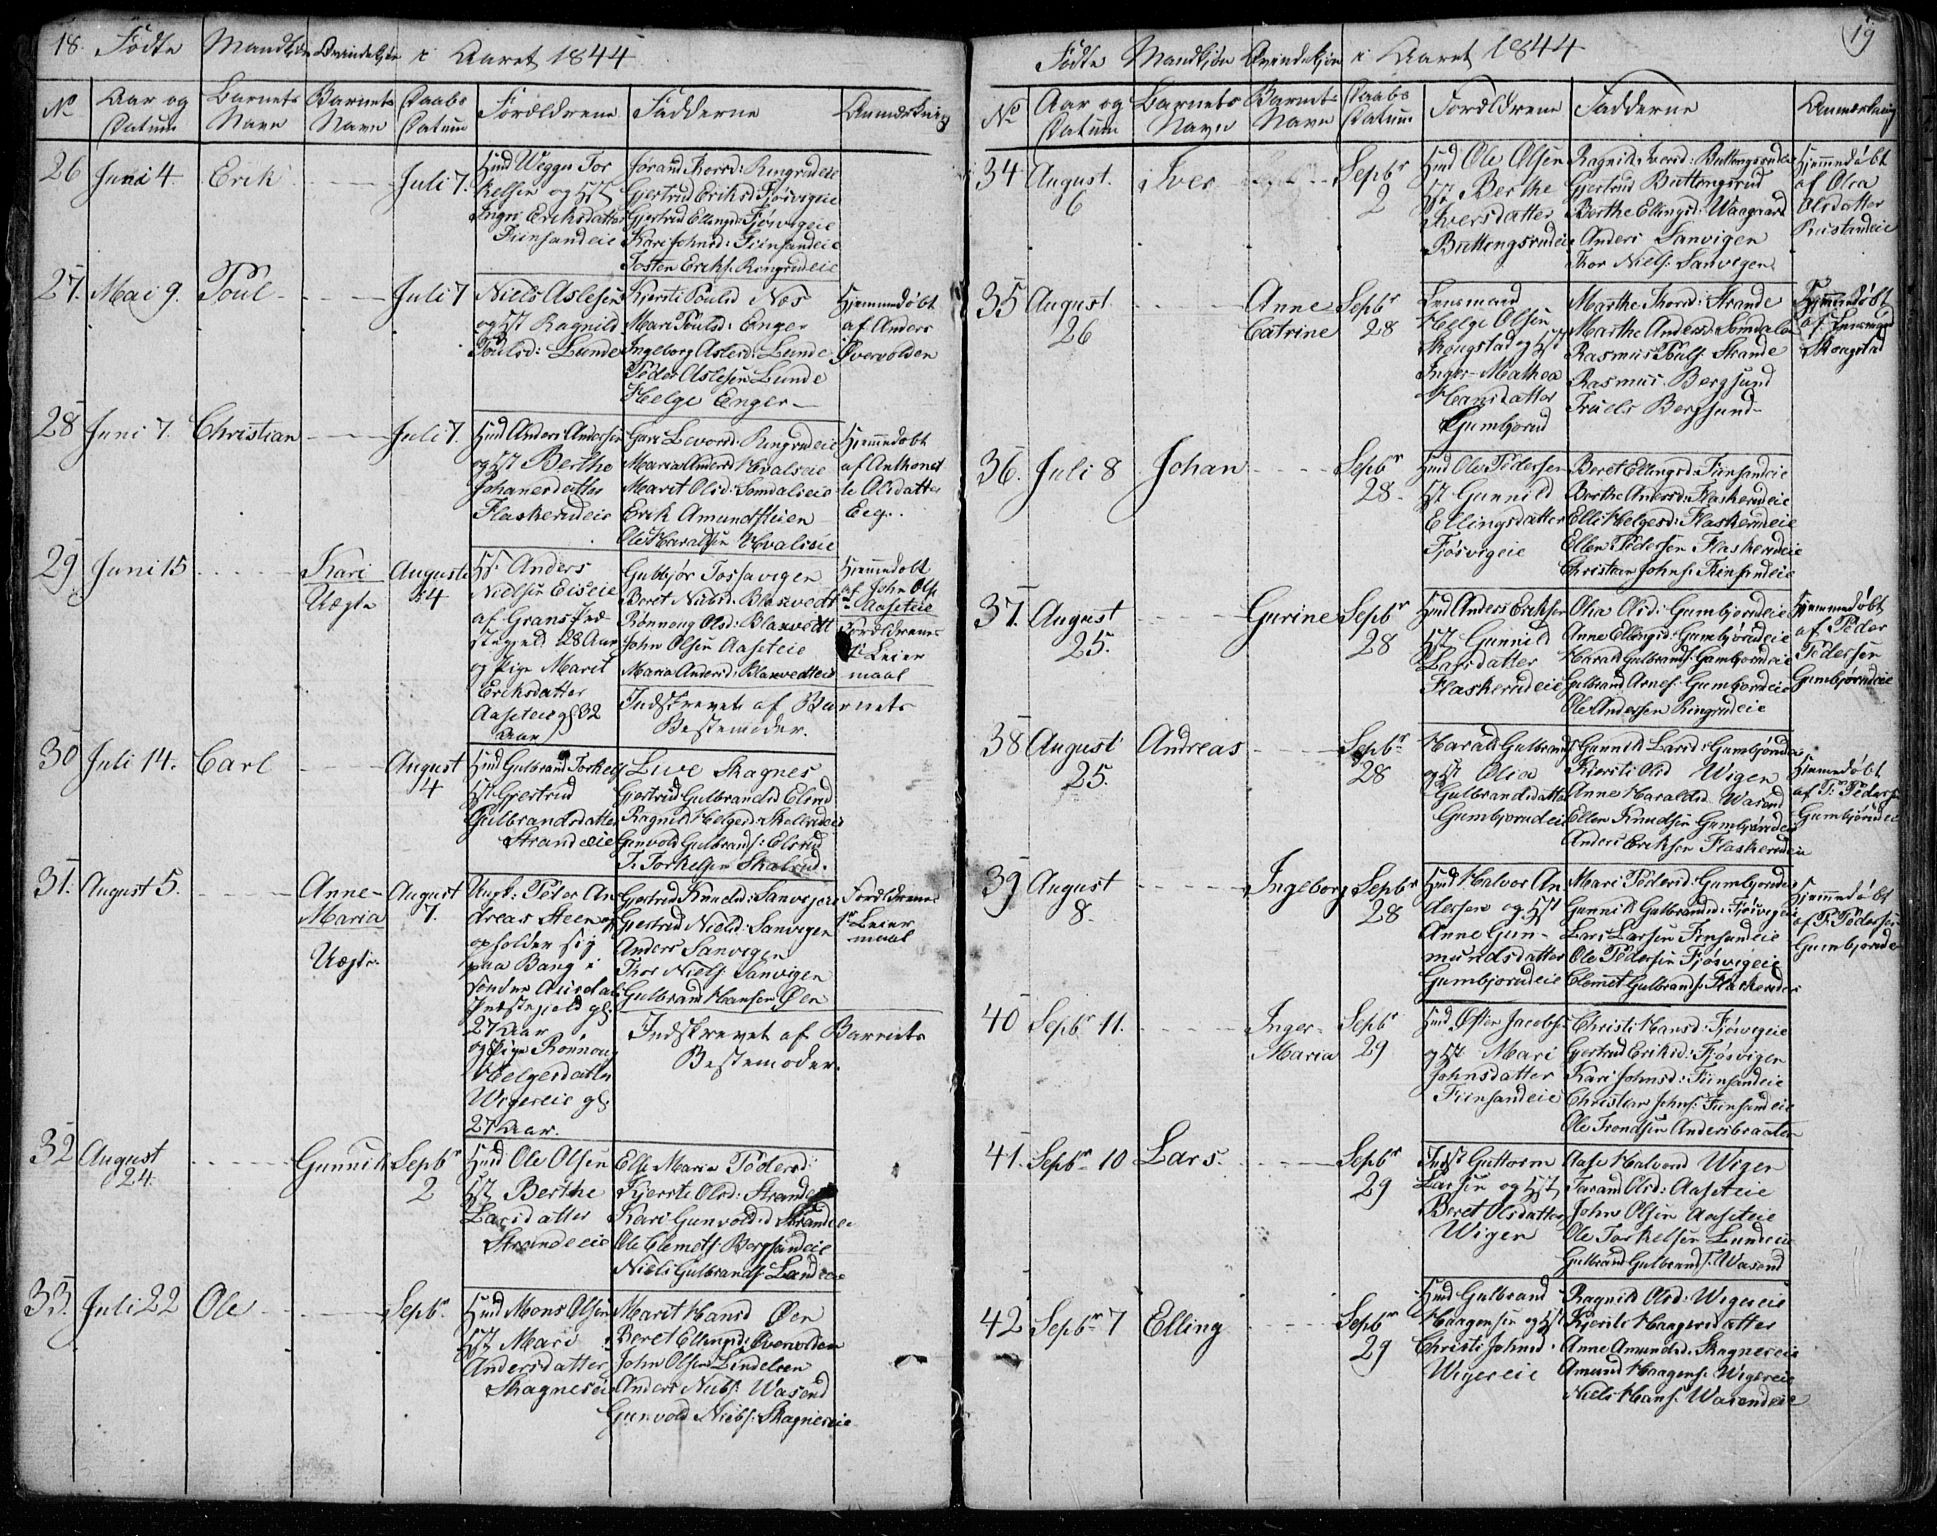 18. Fødte Mandkjøn Qvindekjøn i Aaret 1844
No
Aar og Datum
Barnets Navn
Barnets Navn
Daabs Datum
Forældrene
Fadderne
Anmærkning
26 Juni 4. Erik Juli 7.
Torkelsen og Hst
Eriksdatter
Fiinsandeie
Thorsd: Ringrudeie
Gjertrud Eriksd: Fjøsvigeie
Gjertrud Ellingsd: Fjøsvigeie
Kari Johnsd: Fiinsandeie
Tosten Eriks: Ringrudeie
27. Mai 9. Poul Juli 7
Niels Aslesen
og Hst Ragnild
Poulsd: Lunde
Kjersti Poulsd Næs
Mari Poulsd: Enger
Ingeborg Aslesd: Lunde
Peder Aslesen Lunde
Helge Enger
Hjemmedøbt
af Anders
Øvervolden
28 Juni 7. Christian Juli 7.
Hmd Anders Andersen
og Hst Berthe
Johanesdatter
Flaskerudeie
Ringrudeie
Maria Andersd: Hvalseie
Marit Olsd: Somdalseie
Erik Amundstuen
Hvalseie
Hjemmedøbt
af Anthonet
te Olsdatter
Eeg.
29 Juni 15 Kari August
Uægte 4
Anders
Nielsen Eiseie
af Grans Præ
stegjeld 28 Aar
og Pige Marit
Eriksdatter
Aaseteie gl 32
Aar
Gubbjør Tossavigen
Beret Nielsd: Blaxvedt
Rønnoug Olsd: Blaxvedt
John Olsen Aaseteie
Maria Andersd: Blaxvedteie
Indskrevet af Barnets
Bestemoder.
Hjemmedøbt
af John Ols
Aaseteie
Forældrenes
Leier
maal
30 Juli 14. Carl August
4
Hmd Gulbrand Torkels
Hst Gjertrud
Gulbrandsdatter
Strandeeie
Live Skagnes
Gjertrud Gulbrandsd Elsrud
Ragnild Helgesd: Skallrudeie
Gunvold Gulbrands: Elsrud
T. Torkelsen Skalrud.
31. August 5. Anne August
Maria 7.
Uægte
Ungk: Peder An
dreas Steen og
opholder sig
paa Bang i
søndre Aurdals
Præstegjeld gl:
27 Aar
og Pige Rønnoug
Helgesdatter
Wigereie gl:
27 Aar.
Gjertrud Knudsd: Sanvigeie
Gjertrud Nielsd: Sanvigen
Anders Sanvigen
Thor Niels: Sanvigen
Gulbrand Hansen Øen
Indskrevet af Barnets
Bestemoder.
Forældrenes
1ste Leier
maal
32 August Gunnild Sepbr
24. 2
Hmd Ole Olsen
Hst Berthe
Larsdatter
Strandeeie
Else Maria Pedersd:
Kjersti Olsd: Strande
Kari Gunvoldsd Strandeeie
Ole Clemets: Bergsundeie
Niels Gulbrands: Landeie
33. Juli 22 Ole Sepbr.
Hmd Mons Olsen
Hst Mari
Andersdatter
Skagneseie
Marit Hansd Øen
Beret Ellingsd: Øvervolden
John Olsen Lindelien
Anders Niels: Wasend
Gunvold Niels: Skagneseie
19
Fødte Mandkjøn Qvindekjøn i Aaret 1844
No
Aar og Datum
Barnets Navn
Barnets Navn
Daabs Datum
Forældrene
Fadderne
Anmærkning
34 August. Iver Sepbr
6 2
Hmd Ole Olsen
Hst Berthe
Iversdatter
Buttengsrudeie
Ragnild Iversd: Buttengsrudeie
Gjertrud Buttengsrud
Berthe Ellingsd: Waagaard
Anders Sanvigen
Thor Niels: Sanvigen
Hjemmedøbt
af Olea
Olsdatter
35 August Anne Sepbr
26 Catrine 28
Lensmand
Helge Olsen
Skougstad og Hst
Inger Mathea
Hansdatter
Gumbjørud
Marthe Thorsd: Strande
Marthe Andersd: Somdalen
Rasmus Pouls: Strande
Rasmus Bergsund
Truels Bergsund
Hjemmedøbt
af Lensmand
Skougstad
36. Juli 8 Johan Sepbr
28.
Hmd Ole Pedersen
Hst Gunnild
Ellingsdatter
Fjøsvigeie
Beret Ellingsd: Fiinsandeie
Berthe Andersd: Flaskerudeie
Elli Helgesd: Flaskerudeie
Ellen Pedersen Flaskerudeie
Christian Johns: Fiinsandeie
37. August Gurine Sepbr
25. 28
Hmd Anders Eriksen
Hst Gunnild
Larsdatter
Flaskerudeie
Olia Olsd: Gumbjørudeie
Anne Ellingsd: Gumbjørudeie
Harald Gulbrands: Gumbjørudeie
Gulbrand Arnes: Gumbjørudeie
Ole Andersen Ringrudeie
Hjemmedøbt
af Peder
Pedersen
Gumbjørudeie
38 August Andreas Sepbr
25. 28
Harald Gulbrands
og Hst Olia
Gulbrandsdatter
Gumbjørudeie
Gunnild Larsd: Gumbjørudeie
Kjersti Olsd Wigen
Anne Haraldsd Wasend
Ellen Knudsen Gumbjørudeie
Anders Eriksen Flaskerudeie
Hjemmedøbt
af P: Pedersen
Gumbjørudeie
39 August Ingeborg Sepbr
8. 28
Hmd Halvor An
dersen og Hst
Anne Gun-
mundsdatter
Gumbjørudeie
Mari Pedersd: Gumbjørudeie
Gunnild Gulbrandsd: Fjøsvigeie
Lars Larsen Fiinsandeie
Ole Pedersen Fjøsvigeie
Clemet Gulbrands: Flaskerudeie
Hjemmedøbt
af P: Pedersen
Gumbjørudeie
40 Sepbr 11. Inger- Sepbr
Maria 29
Hmd Østen Jacobs:
og Hst Mari
Johnsdatter
Fiinsandeie
Christi Hansd: Fjøsvigeie
Gjertrud Eriksd: Fjøsvigen
Kari Johnsd: Fiinsandeie
Christian Johns: Fiinsandeie
Ole Trondsen Andersbraaten
41. Sepbr 10 Lars. Sepbr
29
Indst Guttorm
Larsen og Hst
Beret Olsdatter
Wigen
Aase Halvorsd Wigen
Taran Olsd: Aaseteie
John Olsen Aaseteie
Ole Torkelsen Lundeie
Gulbrand Gulbrands: Wasend
42 Sepbr 7 Elling Sepbr
29
Hmd Gulbrand
Haagensen og Hst
Christi Johnsd.
Wigereie
Ragnild Olsd: Wigereie
Kjersti Haagensdatter
Anne Amundsd. Skagneseie
Amund Haagens: Wigereie
Niels Hans: Wasendeie